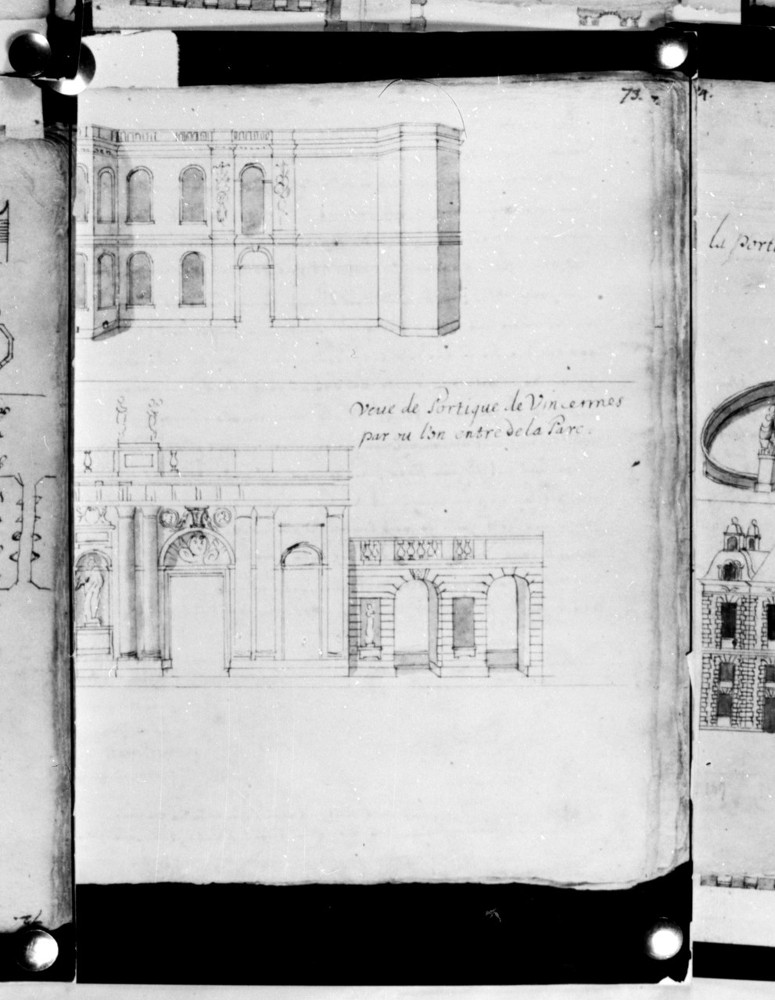 73.
Veue de Portique de Vincennes
par ou l'on entre de la Parc.
la Porti